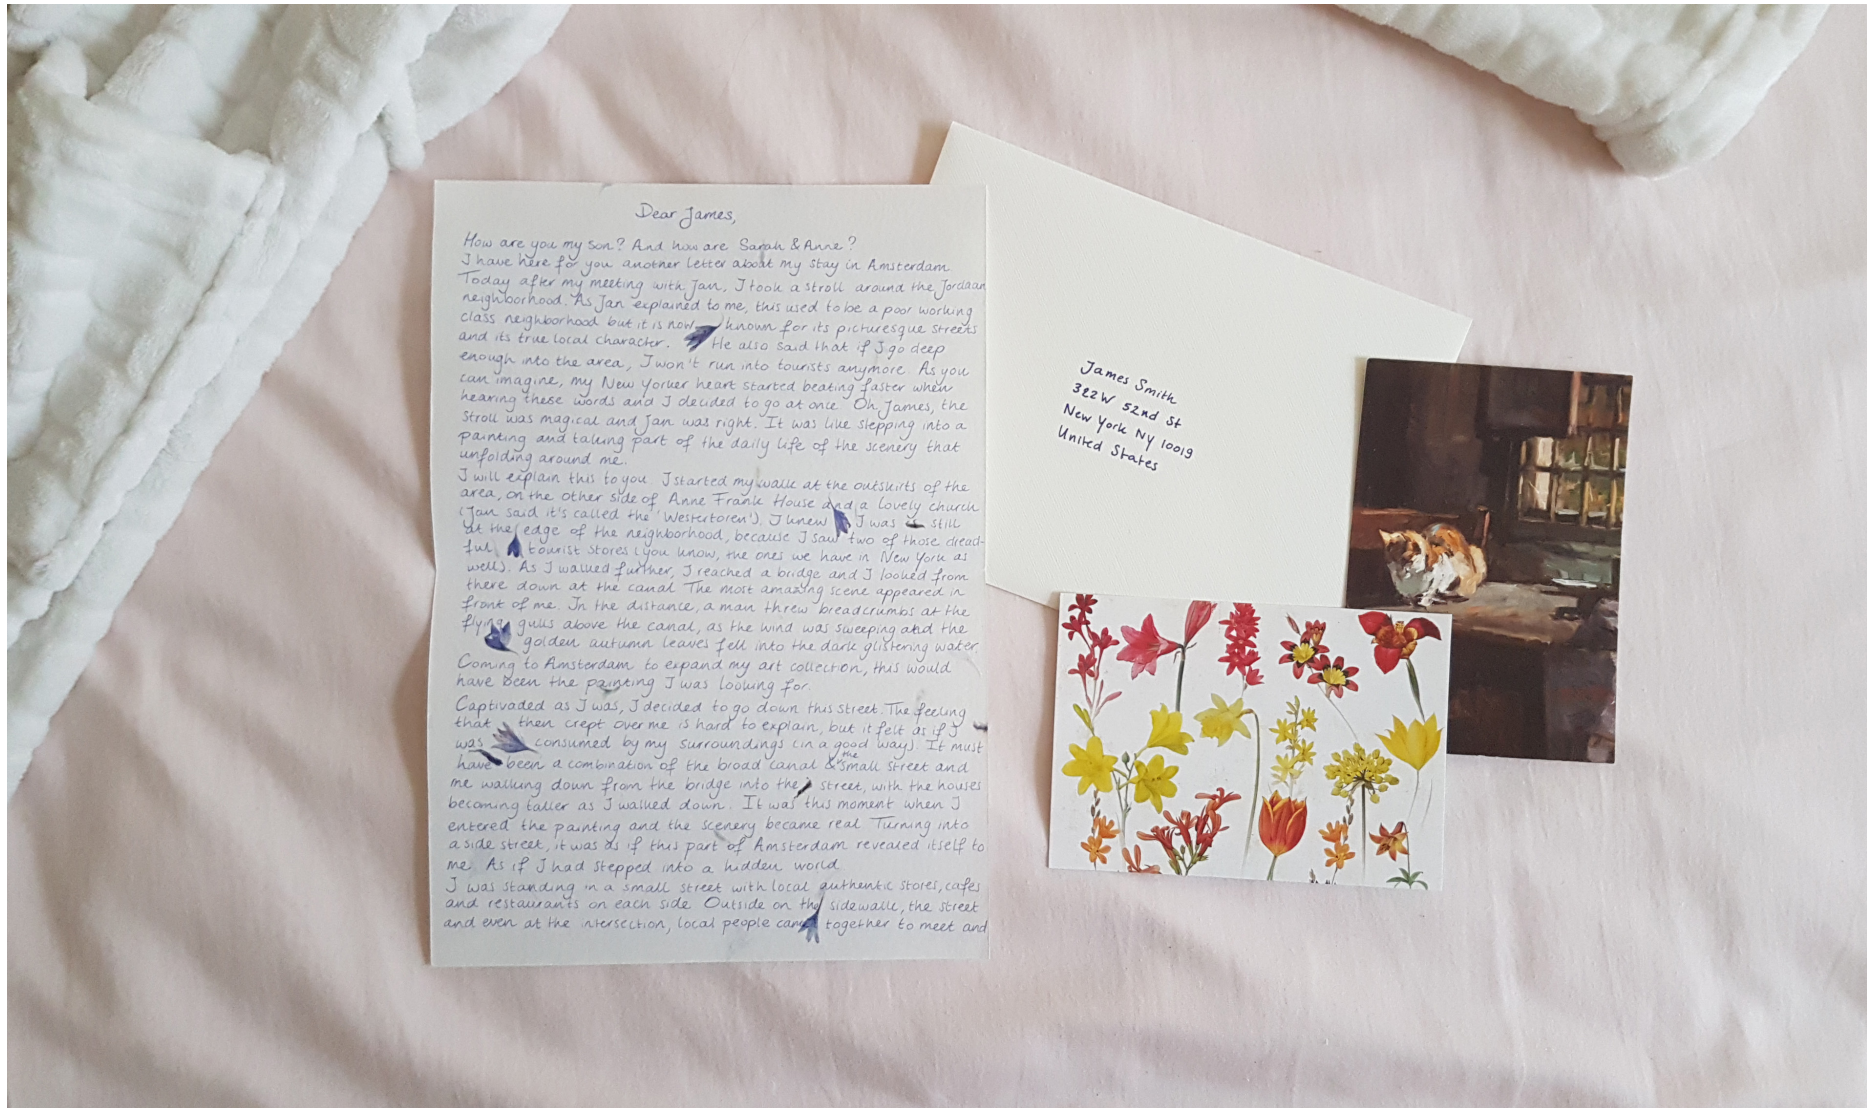 Dear James,
How are you my son? And how are Sarah & Anne?
I have here for you another letter about my stay in Amsterdam
Today after my meeting with Jan, I took a stroll around the Jordaan
neighborhood. As Jan explained to me, this used to be a poor working
class neighborhood but it is now known for its picturesque streets
and its true local character. He also said that if I go deep
enough into the area, I won't run into tourists anymore. As you
can imagine, my New Yorker heart started beating faster when
hearing these words and I decided to go at once. Oh James, the
stroll was magical and Jan was right. It was like stepping into a
painting and taking part of the daily life of the scenery that
unfolding around me.
I will explain this to you. I started my walk at the outskirts of the
area, on the other side of Anne Frank House and a lovely church
(Jan said it's called the 'Westertoren'). I knew I was still
at the edge of the neighborhood, because I saw two of those dread-
ful tourist stores (you know, the ones we have in New York as
well). As I walked further, I reached a bridge and I looked from
there down at the canal. The most amazing scene appeared in
front of me. In the distance, a man threw breadcrumbs at the
flying gulls above the canal, as the wind was sweeping and the
golden autumn leaves fell into the dark glistering water.
Coming to Amsterdam to expand my art collection, this would
have been the painting I was looking for.
Captivaded as I was, I decided to go down this street. The feeling
that then crept over me is hard to explain, but it felt as if I
was consumed by my surroundings (in a good way). It must
have been a combination of the broad canal & the small street and
me walking down from the bridge into the street, with the houses
becoming taller as I walked down. It was this moment when I
entered the painting and the scenery became real. Turning into
a side street, it was as if this part of Amsterdam revealed itself to
me. As if I had stepped into a hidden world.
I was standing in a small street with local authentic stores, cafés
and restaurants on each side. Outside on the sidewalk, the street
and even at the intersection, local people came together to meet and
James Smith
322 W 52nd St
New York NY 10019
United States